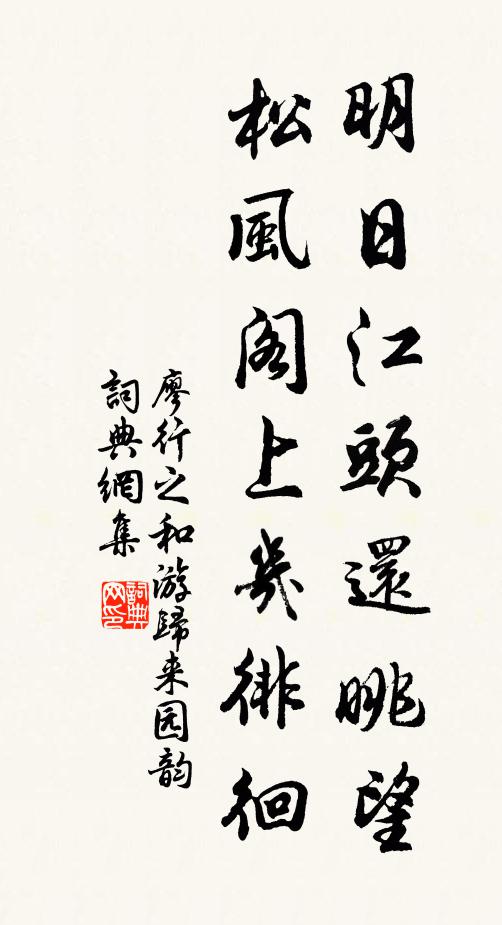 明日江頭還眺望
松風阁上幾徘徊
廖行之和游歸来园韵
詞典網集
詞典网印